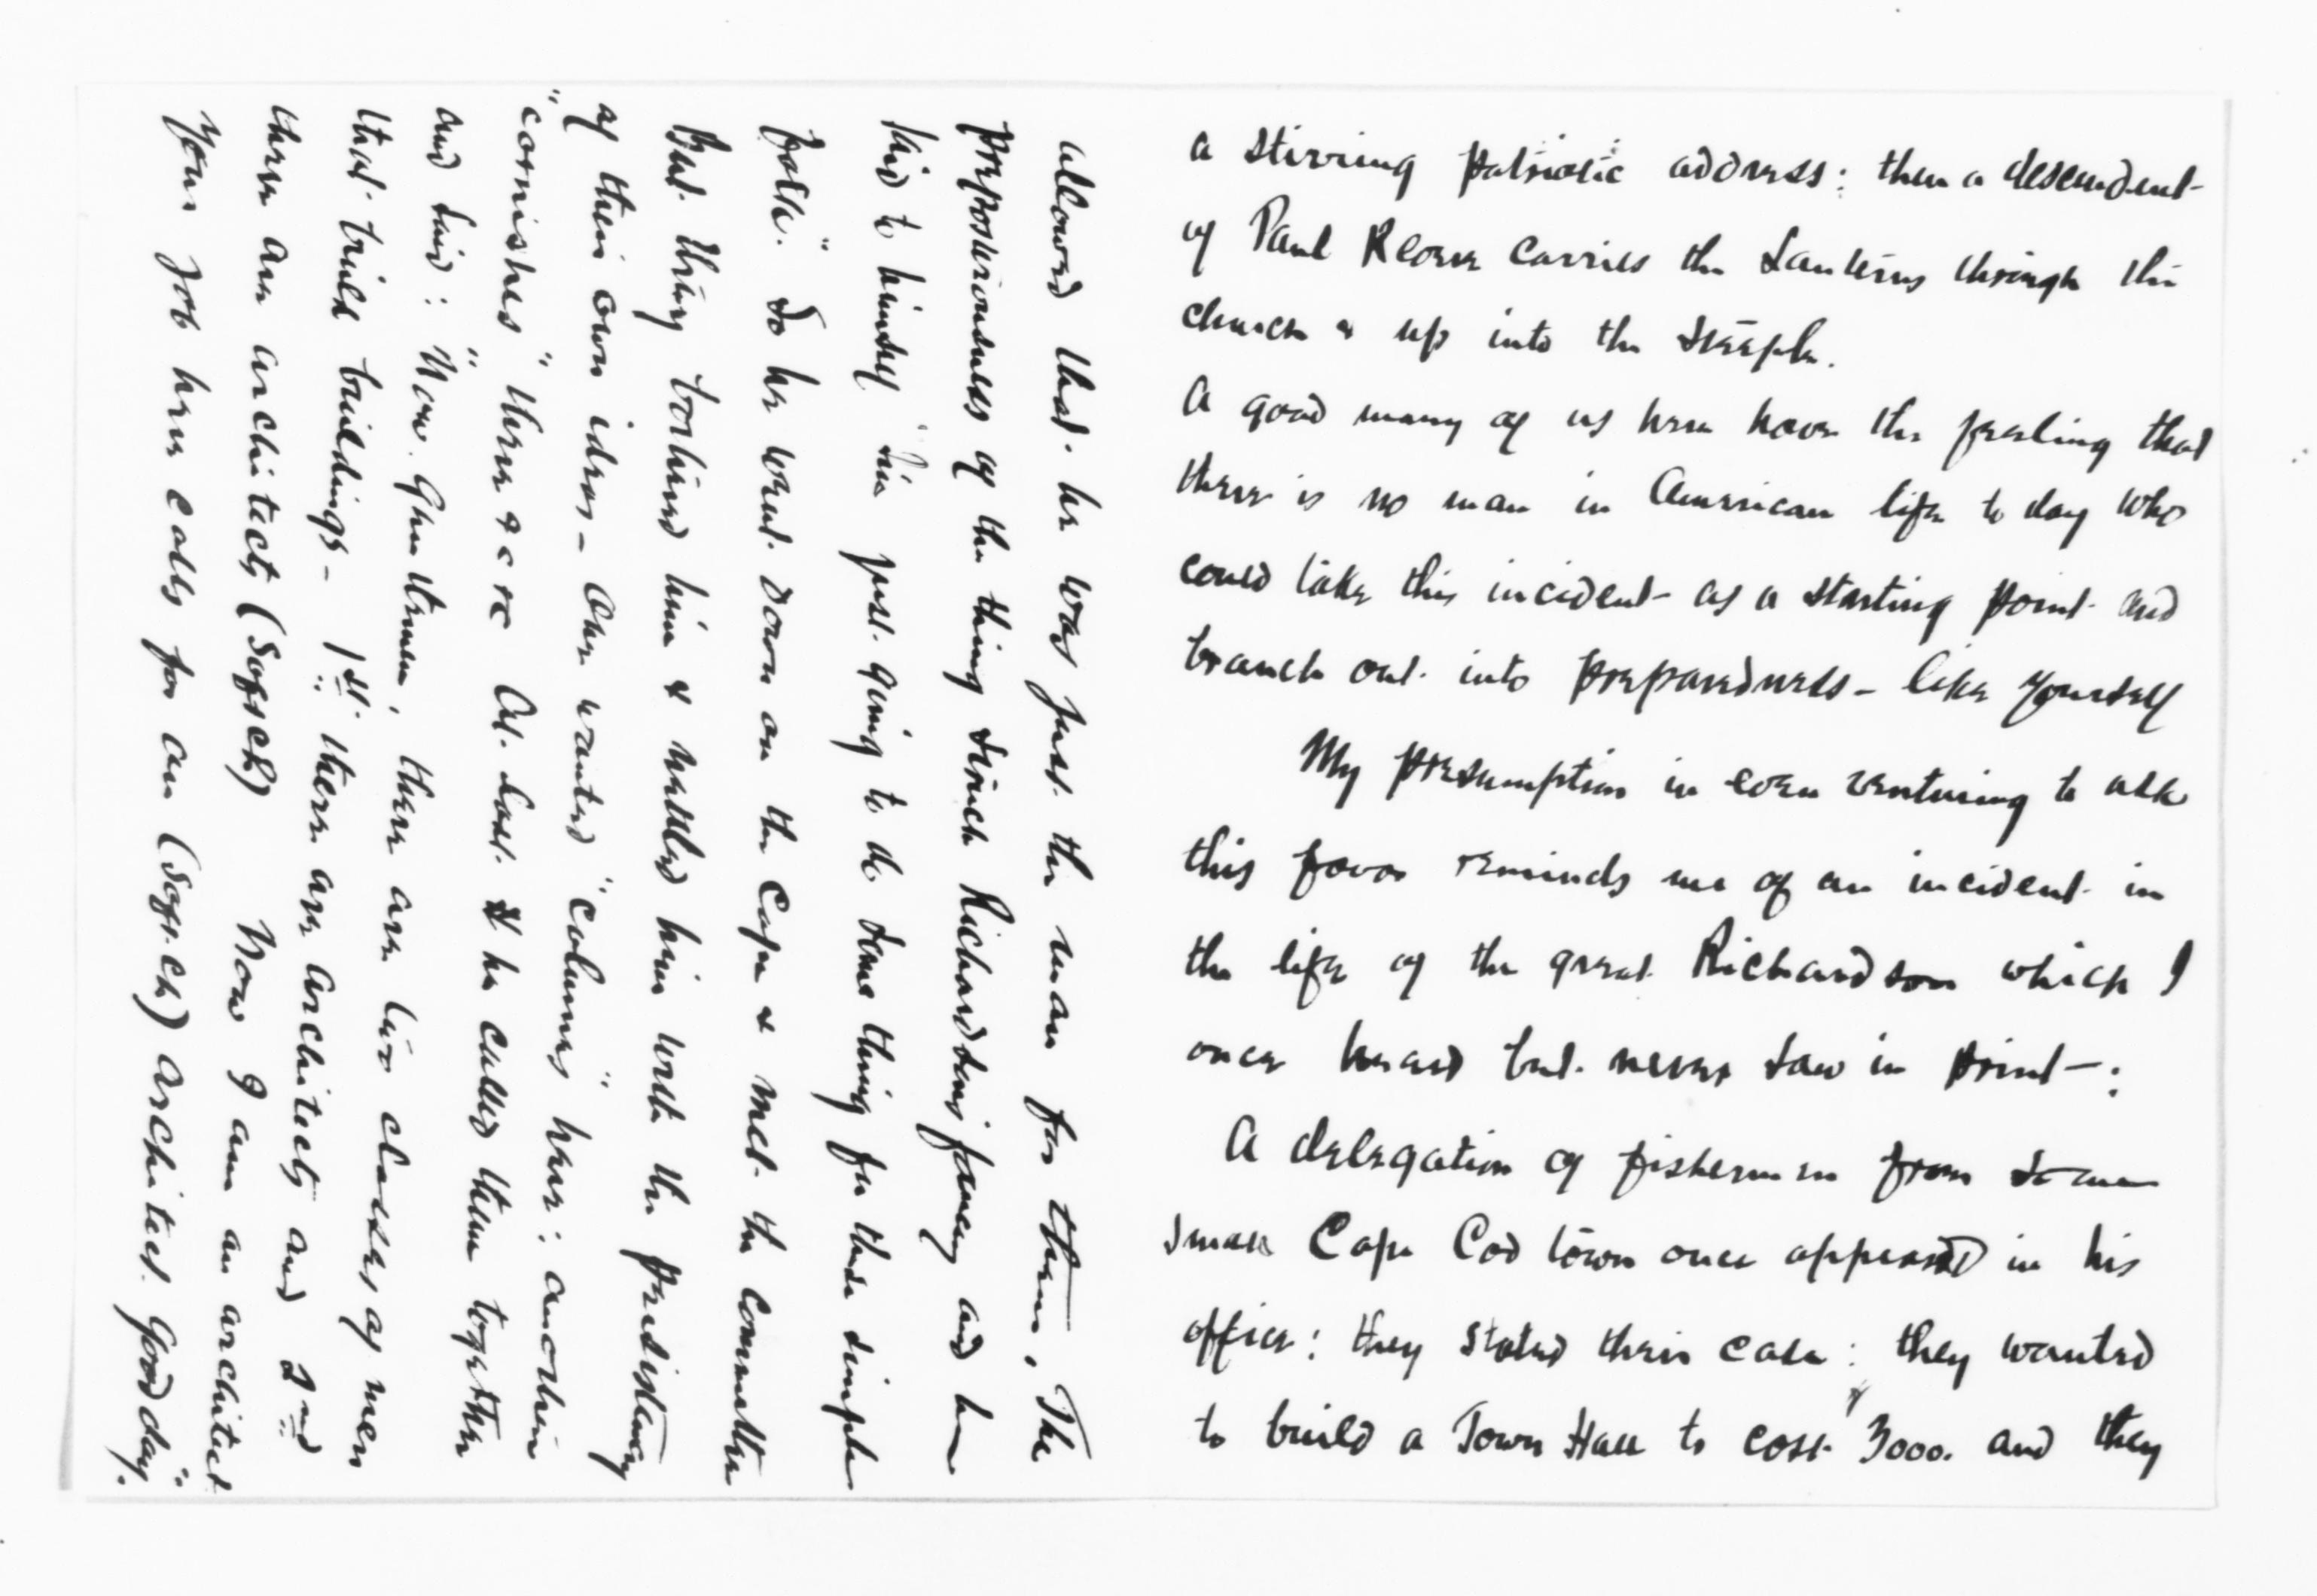 a stirring patriotic address: then a descendent
of Paul Revere carries the Lanterns through the
church & up into the steeple.
A good many of us here have the feeling that
there is no man in American life to day who
could take this incident as a starting point and
branch out into preparedness - like yourself
My presumption in even venturing to ask
this favor reminds me of an incident in
the life of the great Richardson which I
once heard but never saw in print -:
A delegation of fishermen from some
small Cape Cod town once appeared in his
office: they stated their case: they wanted
to build a Town Hall to cost $3000. and they
allowed that he was just the man for them. The
preposterousness of the thing struck Richardson's fancy and he
said to himself "I'm just going to do some thing for these simple
folk." So he went down on the Cape & met the committee
But they bothered him & nettled him with the persistency
of their own ideas - One wanted "columns" here: another
"cornishes" there &c &c At last he called them together
and said: "Now Gentlemen, there are two classes of men
that build buildings - 1st there are architects and 2nd
there are architects (soft ch) Now I am an architect
Your job here calls for an (soft ch) architect. Good day."